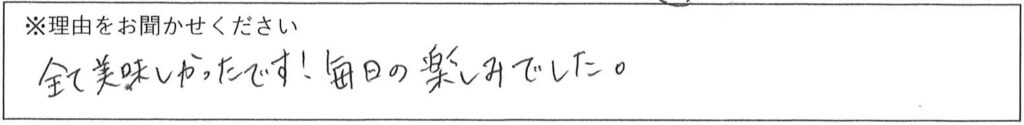 ※理由をお聞かせください
全て美味しかったです！毎日の楽しみでした。